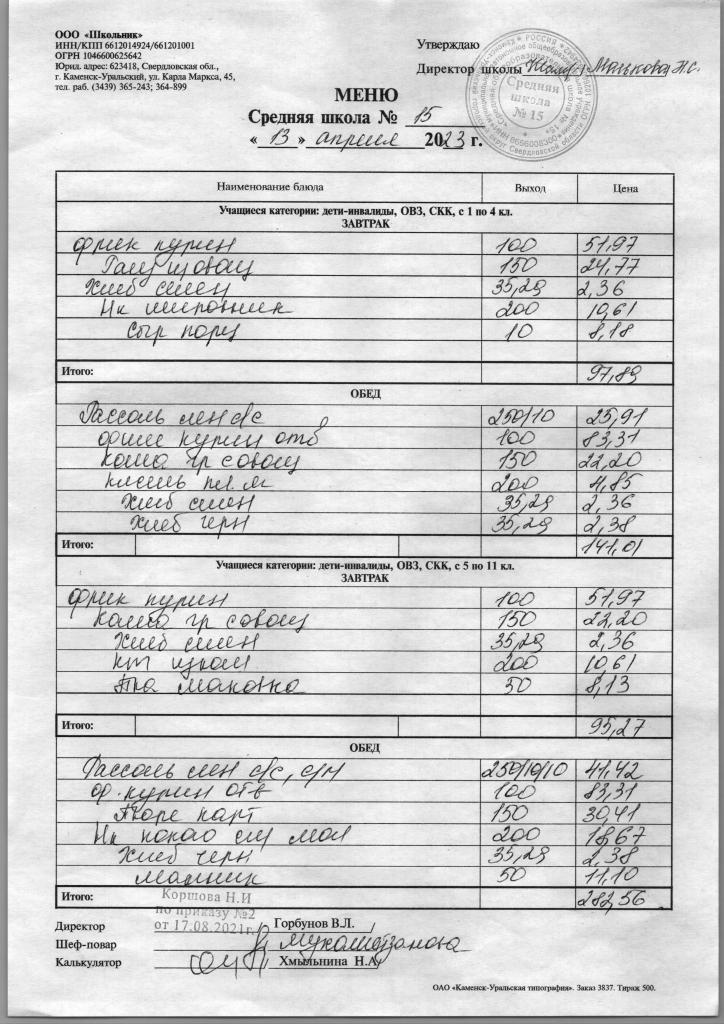 ООО «Школьник»
ИНН/КПП 6612014924/661201001
ОГРН 1046600625642
Юрид. адрес: 623418, Свердловская обл.,
г. Каменск-Уральский, ул. Карла Маркса, 45,
тел. раб. (3439) 365-243; 364-899
Утверждаю
Директор школы Малькова Н.С.
Средняя
школа
№ 15
МЕНЮ
Средняя школа № 15
« 13 » апреля 2023 г.
Наименование блюда Выход Цена
Учащиеся категории: дети-инвалиды, ОВЗ, СКК, с 1 по 4 кл.
ЗАВТРАК
фрик курин 100 51,97
Рагу из овощ 150 24,77
Хлеб пшен 35,29 2,36
Нк шиповник 200 10,61
Сыр порц 10 8,18
Итого: 97,89
ОБЕД
Рассоль лен с/с 250/10 25,91
филе курин отв 100 83,31
Каша гр с овощ 150 22,20
кисель пл. я 200 4,85
Хлеб пшен 35,29 2,36
Хлеб черн 35,29 2,38
Итого: 141,01
Учащиеся категории: дети-инвалиды, ОВЗ, СКК, с 5 по 11 кл.
ЗАВТРАК
фрик курин 100 51,97
Каша гр с овощ 150 22,20
Хлеб пшен 35,29 2,36
кп изюм 200 10,61
50 8,13
Итого: 95,27
ОБЕД
Рассоль лен с/с, с/м 250/10/10 41,42
ф. курин отв 100 83,31
Пюре карт 150 30,41
Нк какао сгу мол 200 18,67
Хлеб черн 35,29 2,38
50 11,10
Итого: 282,56
Коршова Н.И
по приказу №2
от 17.08.2021г.
Директор Горбунов В.Л.
Шеф-повар
Калькулятор Хмыльнина Н.А.
ОАО «Каменск-Уральская типография». Заказ 3837. Тираж 500.